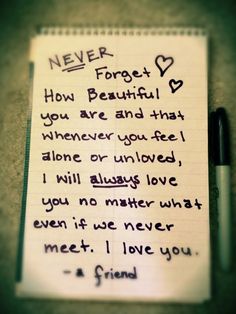 NEVER
Forget
How Beautiful
you are and that
whenever you feel
alone or unloved,
I will always love
you no matter what
even if we never
meet. I love you.
- a friend